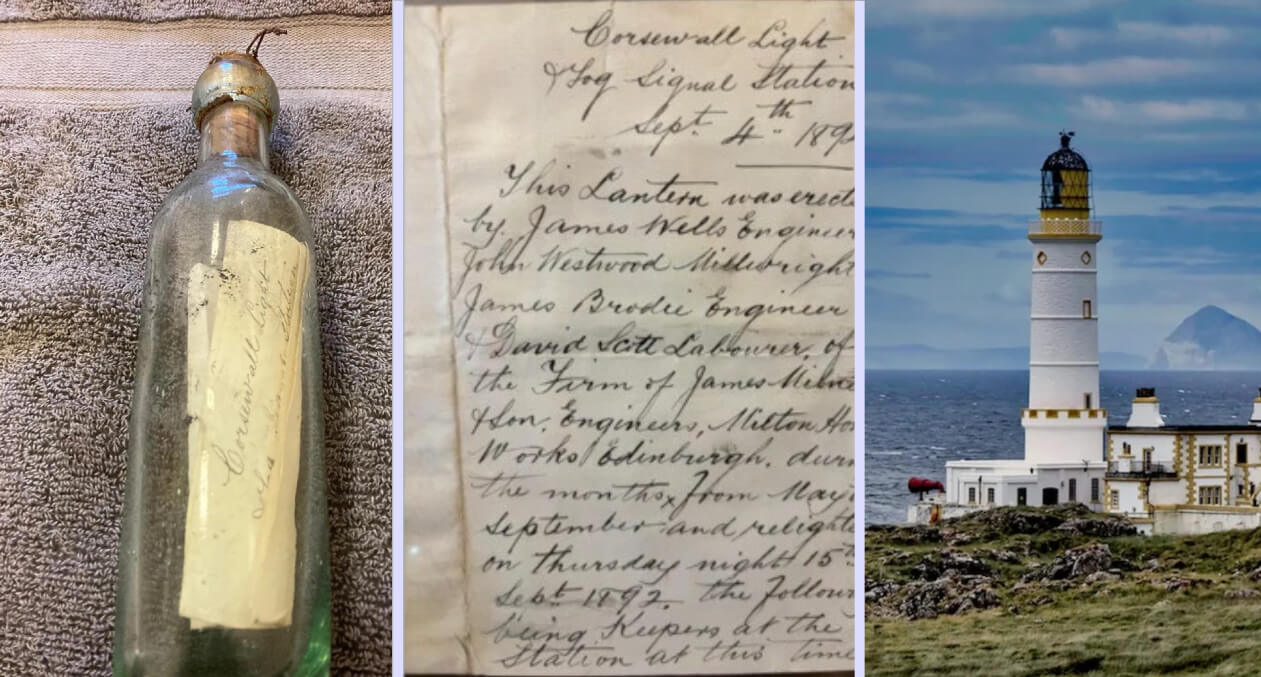 Corsewall Light
Corsewall Light
& Fog Signal Station
Sept. 4th 189
This Lantern was erect
by. James Wells Engineer
John Westwood Millwright
James Brodie Engineer
& David Scott Labourer, of
the Firm of James Milne
& Son, Engineers, Milton Ho
Works Edinburgh. durin
the months, from May
September and relighte
on Thursday night 15th
Sept 1892. the follow
being Keepers at the
Station at this time